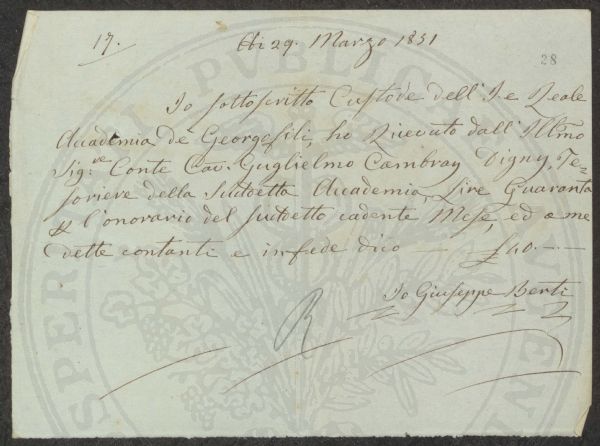 17.
Adi 29. Marzo 1851
28
Io sottoscritto Custode dell' I. e Reale
Accademia de Georgofili, ho Ricevuto dall' Illmo
Sig.re Conte Cav. Guglielmo Cambray Digny, Te=
soriere della Sudetta Accademia, Lire Quaranta
l'onorario del sudetto cadente Mese, ed a me
dette contanti e in fede dico — £ 40.—.—
Io Giuseppe Berti
R